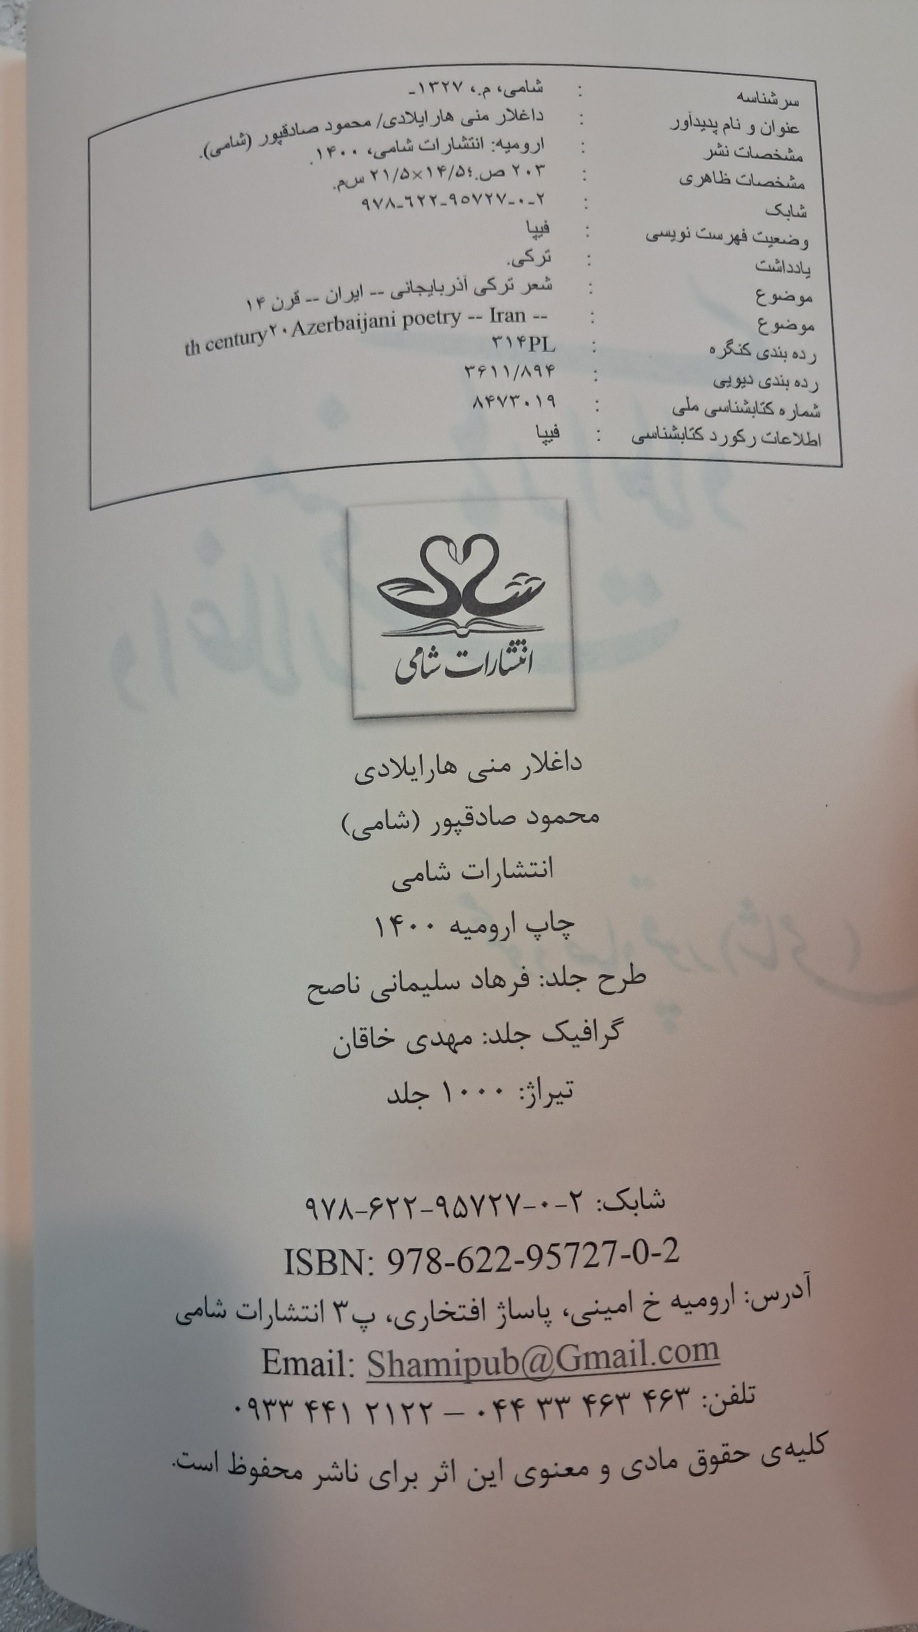 سرشناسه : شامی، م.، ۱۳۲۷-
عنوان و نام پدیدآور : داغلار منی هارایلادی/ محمود صادقپور (شامی).
مشخصات نشر : ارومیه: انتشارات شامی، ۱۴۰۰.
مشخصات ظاهری : ۲۰۳ ص.؛ ۱۴/۵×۲۱/۵ س‌م.
شابک : ۹۷۸-۶۲۲-۹۵۷۲۷-۰-۲
وضعیت فهرست نویسی : فیپا
یادداشت : ترکی.
موضوع : شعر ترکی آذربایجانی -- ایران -- قرن ۱۴
موضوع : Azerbaijani poetry -- Iran -- ۲۰th century
رده بندی کنگره : ۳۱۴PL
رده بندی دیویی : ۳۶۱۱/۸۹۴
شماره کتابشناسی ملی : ۸۴۷۳۰۱۹
اطلاعات رکورد کتابشناسی : فیپا
انتشارات شامی
داغلار منی هارایلادی
محمود صادقپور (شامی)
انتشارات شامی
چاپ ارومیه ۱۴۰۰
طرح جلد: فرهاد سلیمانی ناصح
گرافیک جلد: مهدی خاقان
تیراژ: ۱۰۰۰ جلد
شابک: ۲-۰-۹۵۷۲۷-۶۲۲-۹۷۸
ISBN: 978-622-95727-0-2
آدرس: ارومیه خ امینی، پاساژ افتخاری، پ۳ انتشارات شامی
Email: Shamipub@Gmail.com
تلفن: ۴۶۳ ۴۶۳ ۳۳ ۰۴۴ – ۲۱۲۲ ۴۴۱ ۰۹۳۳
کلیه‌ی حقوق مادی و معنوی این اثر برای ناشر محفوظ است.